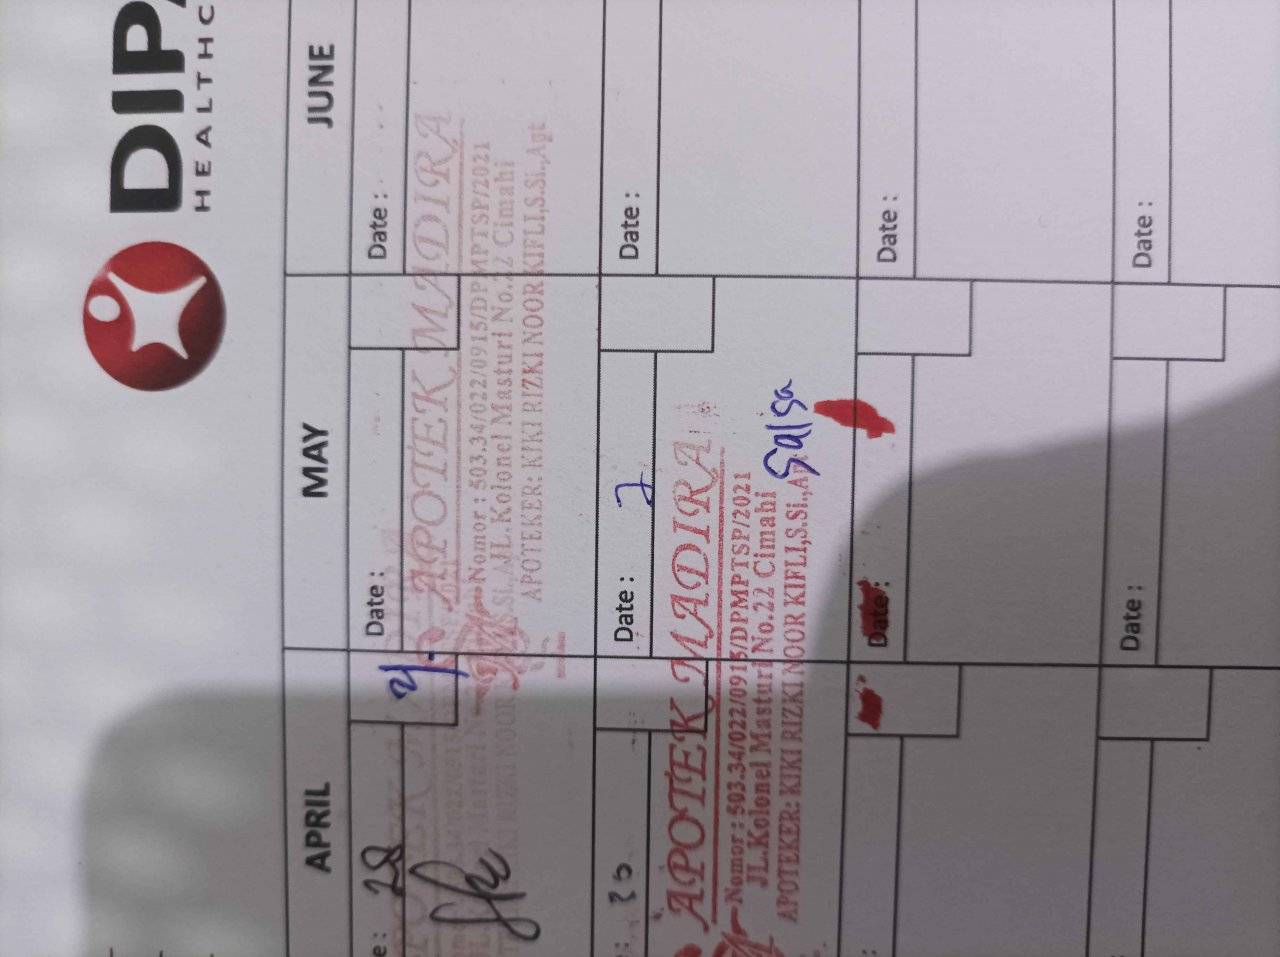 DIP
HEALTHC
APRIL MAY JUNE
e : 28 Date : Date :
APOTEK MADIRA
Nomor : 503.34/022/0915/DPMPTSP/2021
JL.Kolonel Masturi No.22 Cimahi
APOTEKER: KIKI RIZKI NOOR KIFLI,S.Si.,Apt
: Date : 2 Date :
APOTEK MADIRA
Nomor : 503.34/022/0915/DPMPTSP/2021
JL.Kolonel Masturi No.22 Cimahi
APOTEKER: KIKI RIZKI NOOR KIFLI,S.Si.,Apt
Salsa
: Date : Date :
Date : Date :